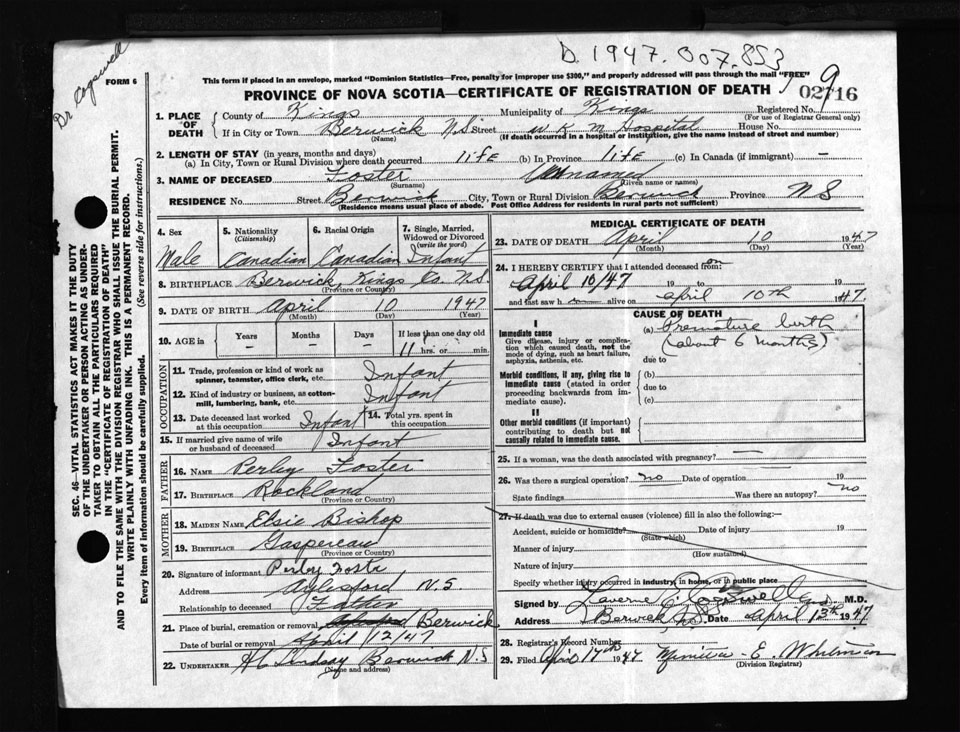 D. 1947.007.853
Dr Cogswell
FORM 6
This form if placed in an envelope, marked "Dominion Statistics—Free, penalty for improper use $300," and properly addressed will pass through the mail "FREE"
PROVINCE OF NOVA SCOTIA—CERTIFICATE OF REGISTRATION OF DEATH
9
02716
1. PLACE OF DEATH { County of Kings Municipality of Kings Registered No.
(For use of Registrar General only)
If in City or Town Berwick N.S. Street W K M Hospital House No.
(Name) (If death occurred in a hospital or institution, give the name instead of street and number)
2. LENGTH OF STAY (in years, months and days)
(a) In City, Town or Rural Division where death occurred life (b) In Province life (c) In Canada (if immigrant) —
3. NAME OF DECEASED Foster Unnamed
(Surname) (Given name or names)
RESIDENCE No. Street Berwick City, Town or Rural Division Berwick Province N S
(Residence means usual place of abode. Post Office Address for residents in rural parts not sufficient)
SEC. 46—VITAL STATISTICS ACT MAKES IT THE DUTY
OF THE UNDERTAKER OR PERSON ACTING AS UNDER-
TAKER TO OBTAIN ALL THE PARTICULARS REQUIRED
IN THE "CERTIFICATE OF REGISTRATION OF DEATH"
AND TO FILE THE SAME WITH THE DIVISION REGISTRAR WHO SHALL ISSUE THE BURIAL PERMIT.
WRITE PLAINLY WITH UNFADING INK. THIS IS A PERMANENT RECORD.
Every item of information should be carefully supplied. (See reverse side for instructions.)
4. Sex
Male
5. Nationality
(Citizenship)
Canadian
6. Racial Origin
Canadian
7. Single, Married,
Widowed or Divorced
(write the word)
Infant
8. BIRTHPLACE Berwick, Kings Co. N.S.
(Province or Country)
9. DATE OF BIRTH April 10 1947
(Month) (Day) (Year)
10. AGE in { Years Months Days If less than one day old
— — — 11 hrs. or min.
OCCUPATION
11. Trade, profession or kind of work as
spinner, teamster, office clerk, etc. Infant
12. Kind of industry or business, as cotton-
mill, lumbering, bank, etc. Infant
13. Date deceased last worked
at this occupation Infant
14. Total yrs. spent in
this occupation
15. If married give name of wife
or husband of deceased Infant
FATHER
16. NAME Perley Foster
17. BIRTHPLACE Rockland
(Province or Country)
MOTHER
18. MAIDEN NAME Elsie Bishop
19. BIRTHPLACE Gaspereau
(Province or Country)
20. Signature of informant Perley Foster
Address Aylesford N.S
Relationship to deceased Father
21. Place of burial, cremation or removal Aylesford Berwick
Date of burial or removal April 12/47
22. UNDERTAKER Lindsay Berwick N.S
(Name and address)
MEDICAL CERTIFICATE OF DEATH
23. DATE OF DEATH April 10 1947
(Month) (Day) (Year)
24. I HEREBY CERTIFY that I attended deceased from: on
April 10/47 19 to 19
and last saw h alive on April 10th 1947.
CAUSE OF DEATH
I
Immediate cause
Give disease, injury or complica-
tion which caused death, not the
mode of dying, such as heart failure,
asphyxia, asthenia, etc.
(a) Premature birth
(about 6 months)
due to
Morbid conditions, if any, giving rise to
immediate cause (stated in order
proceeding backwards from im-
mediate cause).
(b)
due to
(c)
II
Other morbid conditions (if important)
contributing to death but not
causally related to immediate cause.
25. If a woman, was the death associated with pregnancy? —
26. Was there a surgical operation? no Date of operation 19
State findings Was there an autopsy? no
27. If death was due to external causes (violence) fill in also the following:—
Accident, suicide or homicide? Date of injury 19
(State which)
Manner of injury
(How sustained)
Nature of injury
Specify whether injury occurred in industry, in home, or in public place
Signed by Laverne Cogswell M.D.
Address Berwick N.S. Date April 13th 1947
28. Registrar's Record Number
29. Filed April 17th 1947 E. Whitman
(Division Registrar)